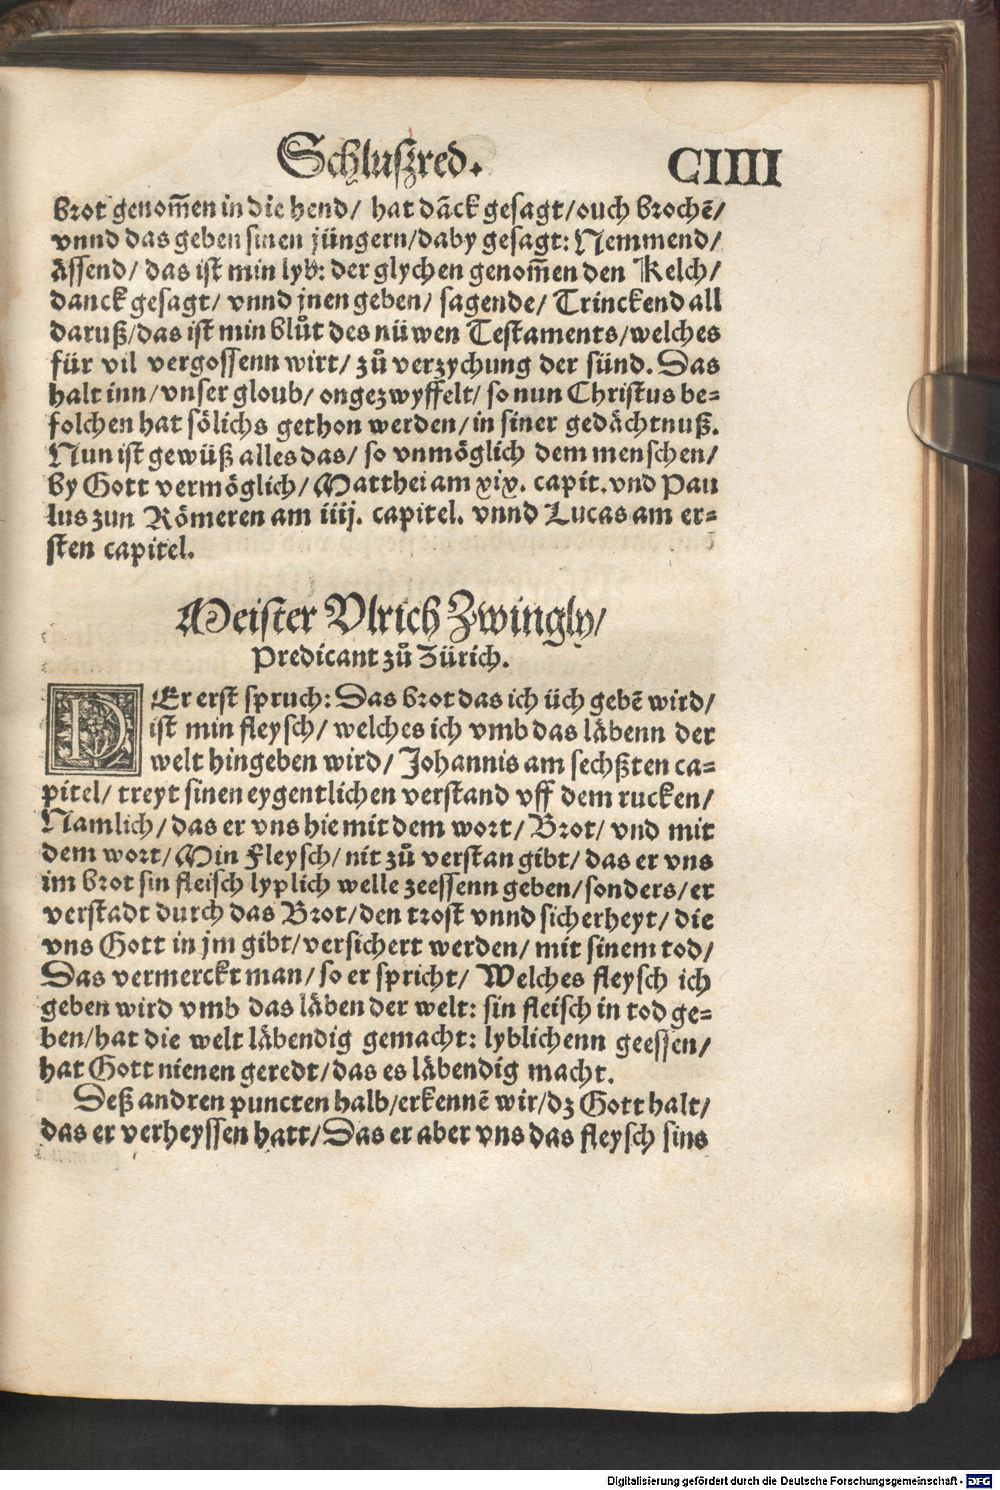 Schluſzred. CIIII
brot genom̃en in die hend/ hat dãck geſagt/ouch brochẽ/
vnnd das geben ſinen jüngern/daby geſagt: Nemmend/
äſſend/ das iſt min lyb: der glychen genom̃en den Kelch/
danck geſagt/ vnnd jnen geben/ ſagende/ Trinckend all
daruß/das iſt min blůt des nüwen Teſtaments/welches
für vil vergoſſenn wirt/ zů verzychung der ſünd. Das
halt inn/vnſer gloub/ ongezwyffelt/ ſo nun Chriſtus be⸗
folchen hat ſölichs gethon werden/in ſiner gedächtnuß.
Nun iſt gewüß alles das/ ſo vnmöglich dem menſchen/
by Gott vermöglich/ Matthei am xix. capit. vnd Pau
lus zun Römeren am iiij. capitel. vnnd Lucas am er⸗
ſten capitel.
Meiſter Vlrich Zwingly/
Predicant zů Zürich.
DEr erſt ſpruch: Das brot das ich üch gebẽ wird/
iſt min fleyſch/ welches ich vmb das läbenn der
welt hingeben wird/ Johannis am ſechßten ca⸗
pitel/ treyt ſinen eygentlichen verſtand vff dem rucken/
Namlich/das er vns hie mit dem wort/ Brot/ vnd mit
dem wort/ Min Fleyſch/ nit zů verſtan gibt/ das er vns
im brot ſin fleiſch lyplich welle zeeſſenn geben/ſonders/ er
verſtadt durch das Brot/den troſt vnnd ſicherheyt/ die
vns Gott in jm gibt/verſichert werden/ mit ſinem tod/
Das vermerckt man/ ſo er ſpricht/ Welches fleyſch ich
geben wird vmb das läben der welt: ſin fleiſch in tod ge⸗
ben/hat die welt läbendig gemacht: lyblichenn geeſſen/
hat Gott nienen geredt/das es läbendig macht.
Deß andren puncten halb/erkennẽ wir/dz Gott halt/
das er verheyſſen hatt/Das er aber vns das fleyſch ſins
Digitalisierung gefördert durch die Deutsche Forschungsgemeinschaft - DFG